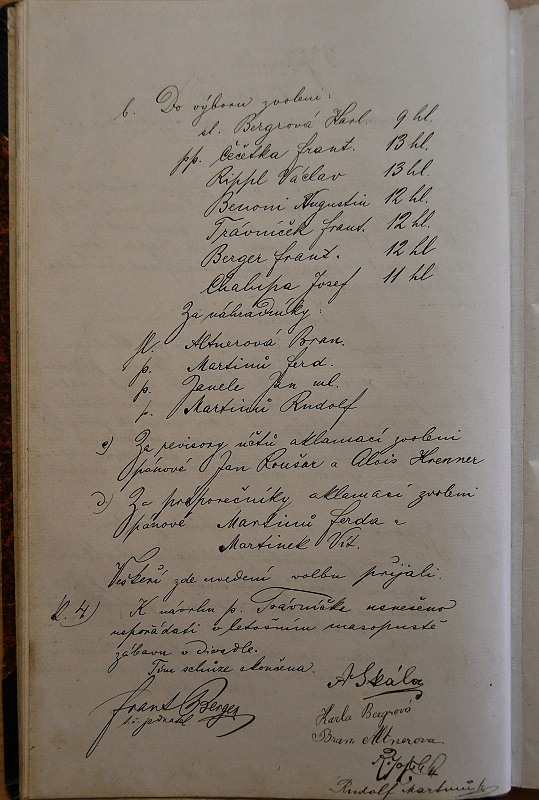 b. Do výboru zvoleni:
sl. Bergrová Karl. 9 hl.
pp. Čečetka frant. 13 hl.
Rippl Václav 13 hl.
Benoni Augustin 12 hl.
Trávníček frant. 12 hl.
Berger frant. 12 hl
Chalupa Josef 11 hl
Za náhradníky:
sl. Altnerová Bran.
p. Martinů ferd.
p. Janele Jan ml.
p. Martinů Rudolf
c) Za revisory účtů aklamací zvoleni
pánové Jan Roušar a Alois Krenner
d) Za podporečníky aklamací zvoleni
pánové Martinů ferda a
Martinek Vít.
Veškeří zde uvedení volbu přijali.
K návrhu p. Trávníčka usneseno
uspořádati v letošním masopustě
zábavu v divadle.
Tím schůze skončena.
A Skála
Frant Berger
t. č. jednatel
Karla Bergrová
Bran Altnerova
Rudolf Martinů